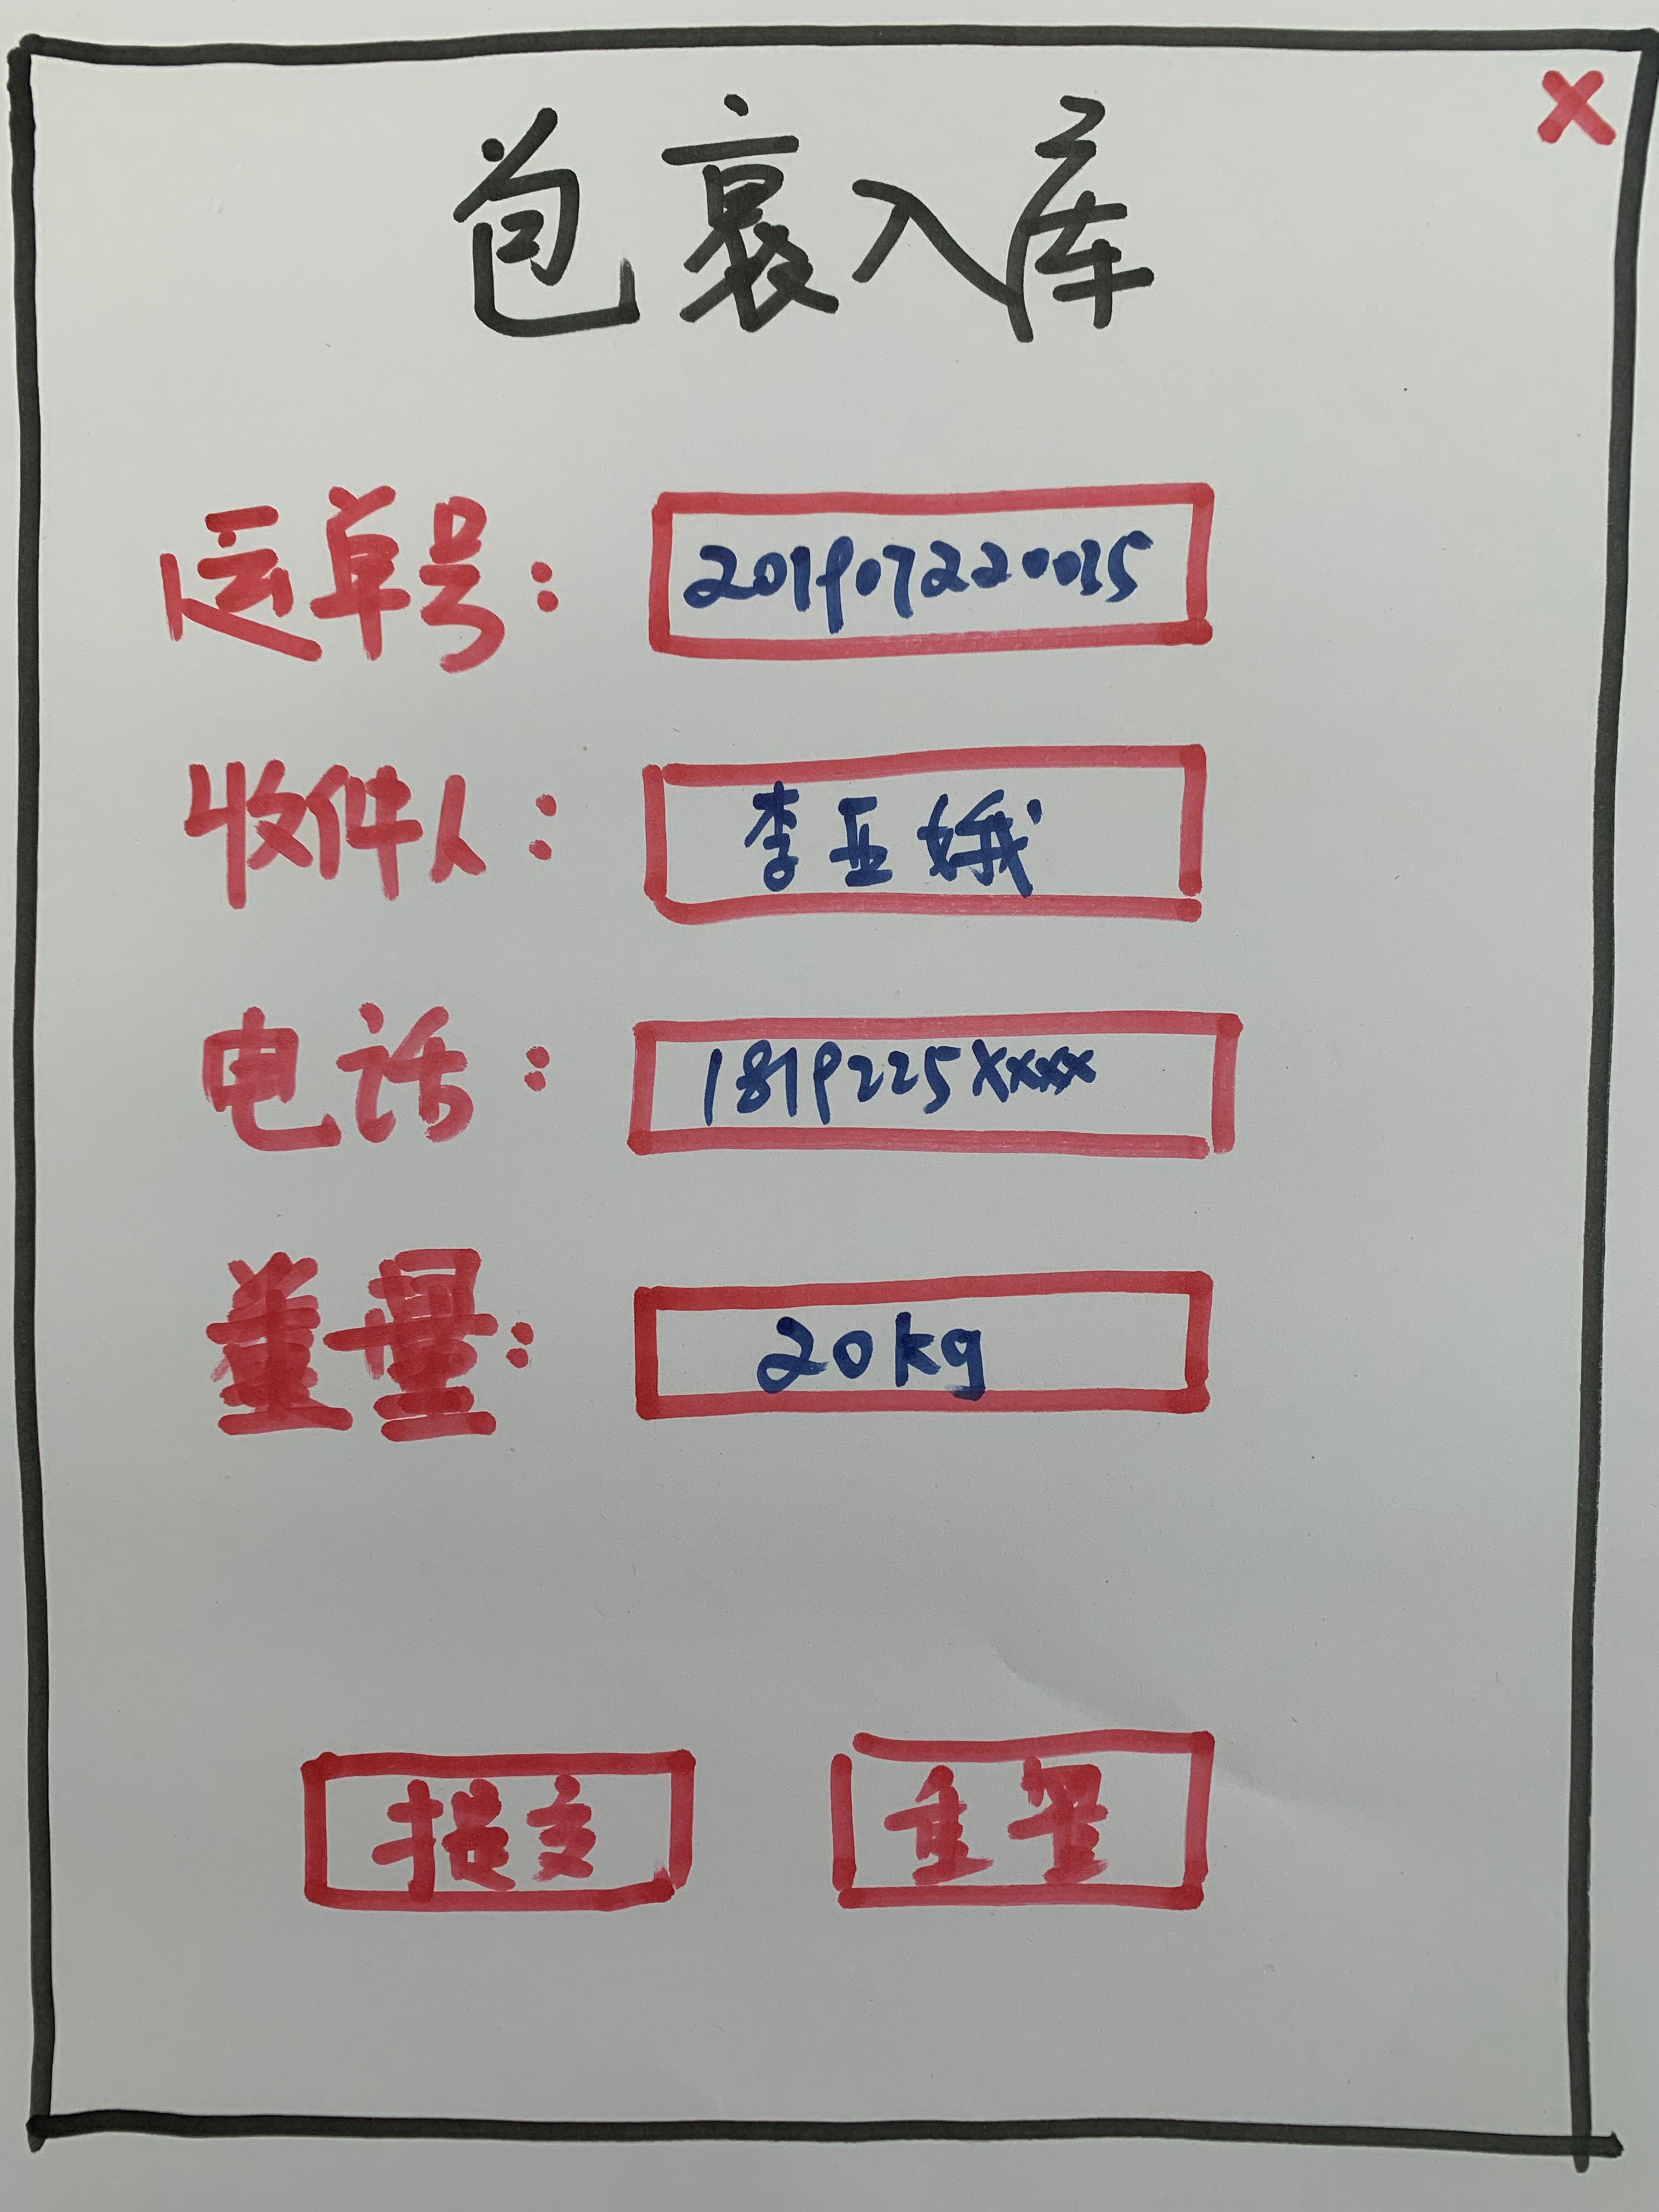 ×
包裹入库
运单号：201907220035
收件人：李亚娥
电话：1819225xxxx
重量：20kg
提交 重置